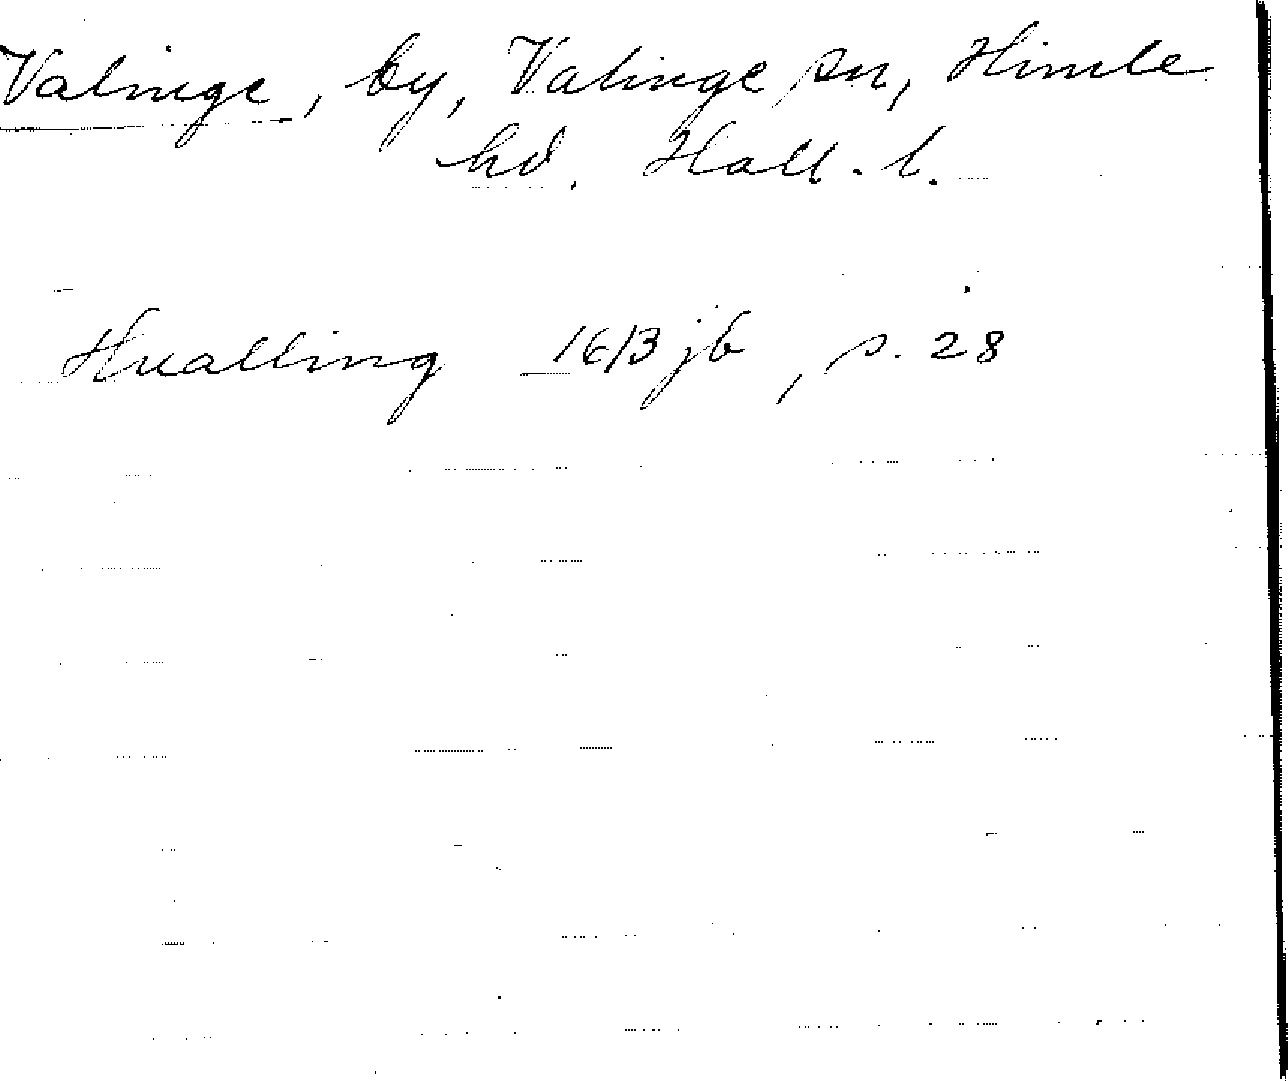 Valinge, by, Valinge sn, Himle
hd. Hall. l.
Hualling 1613 jb, s. 28